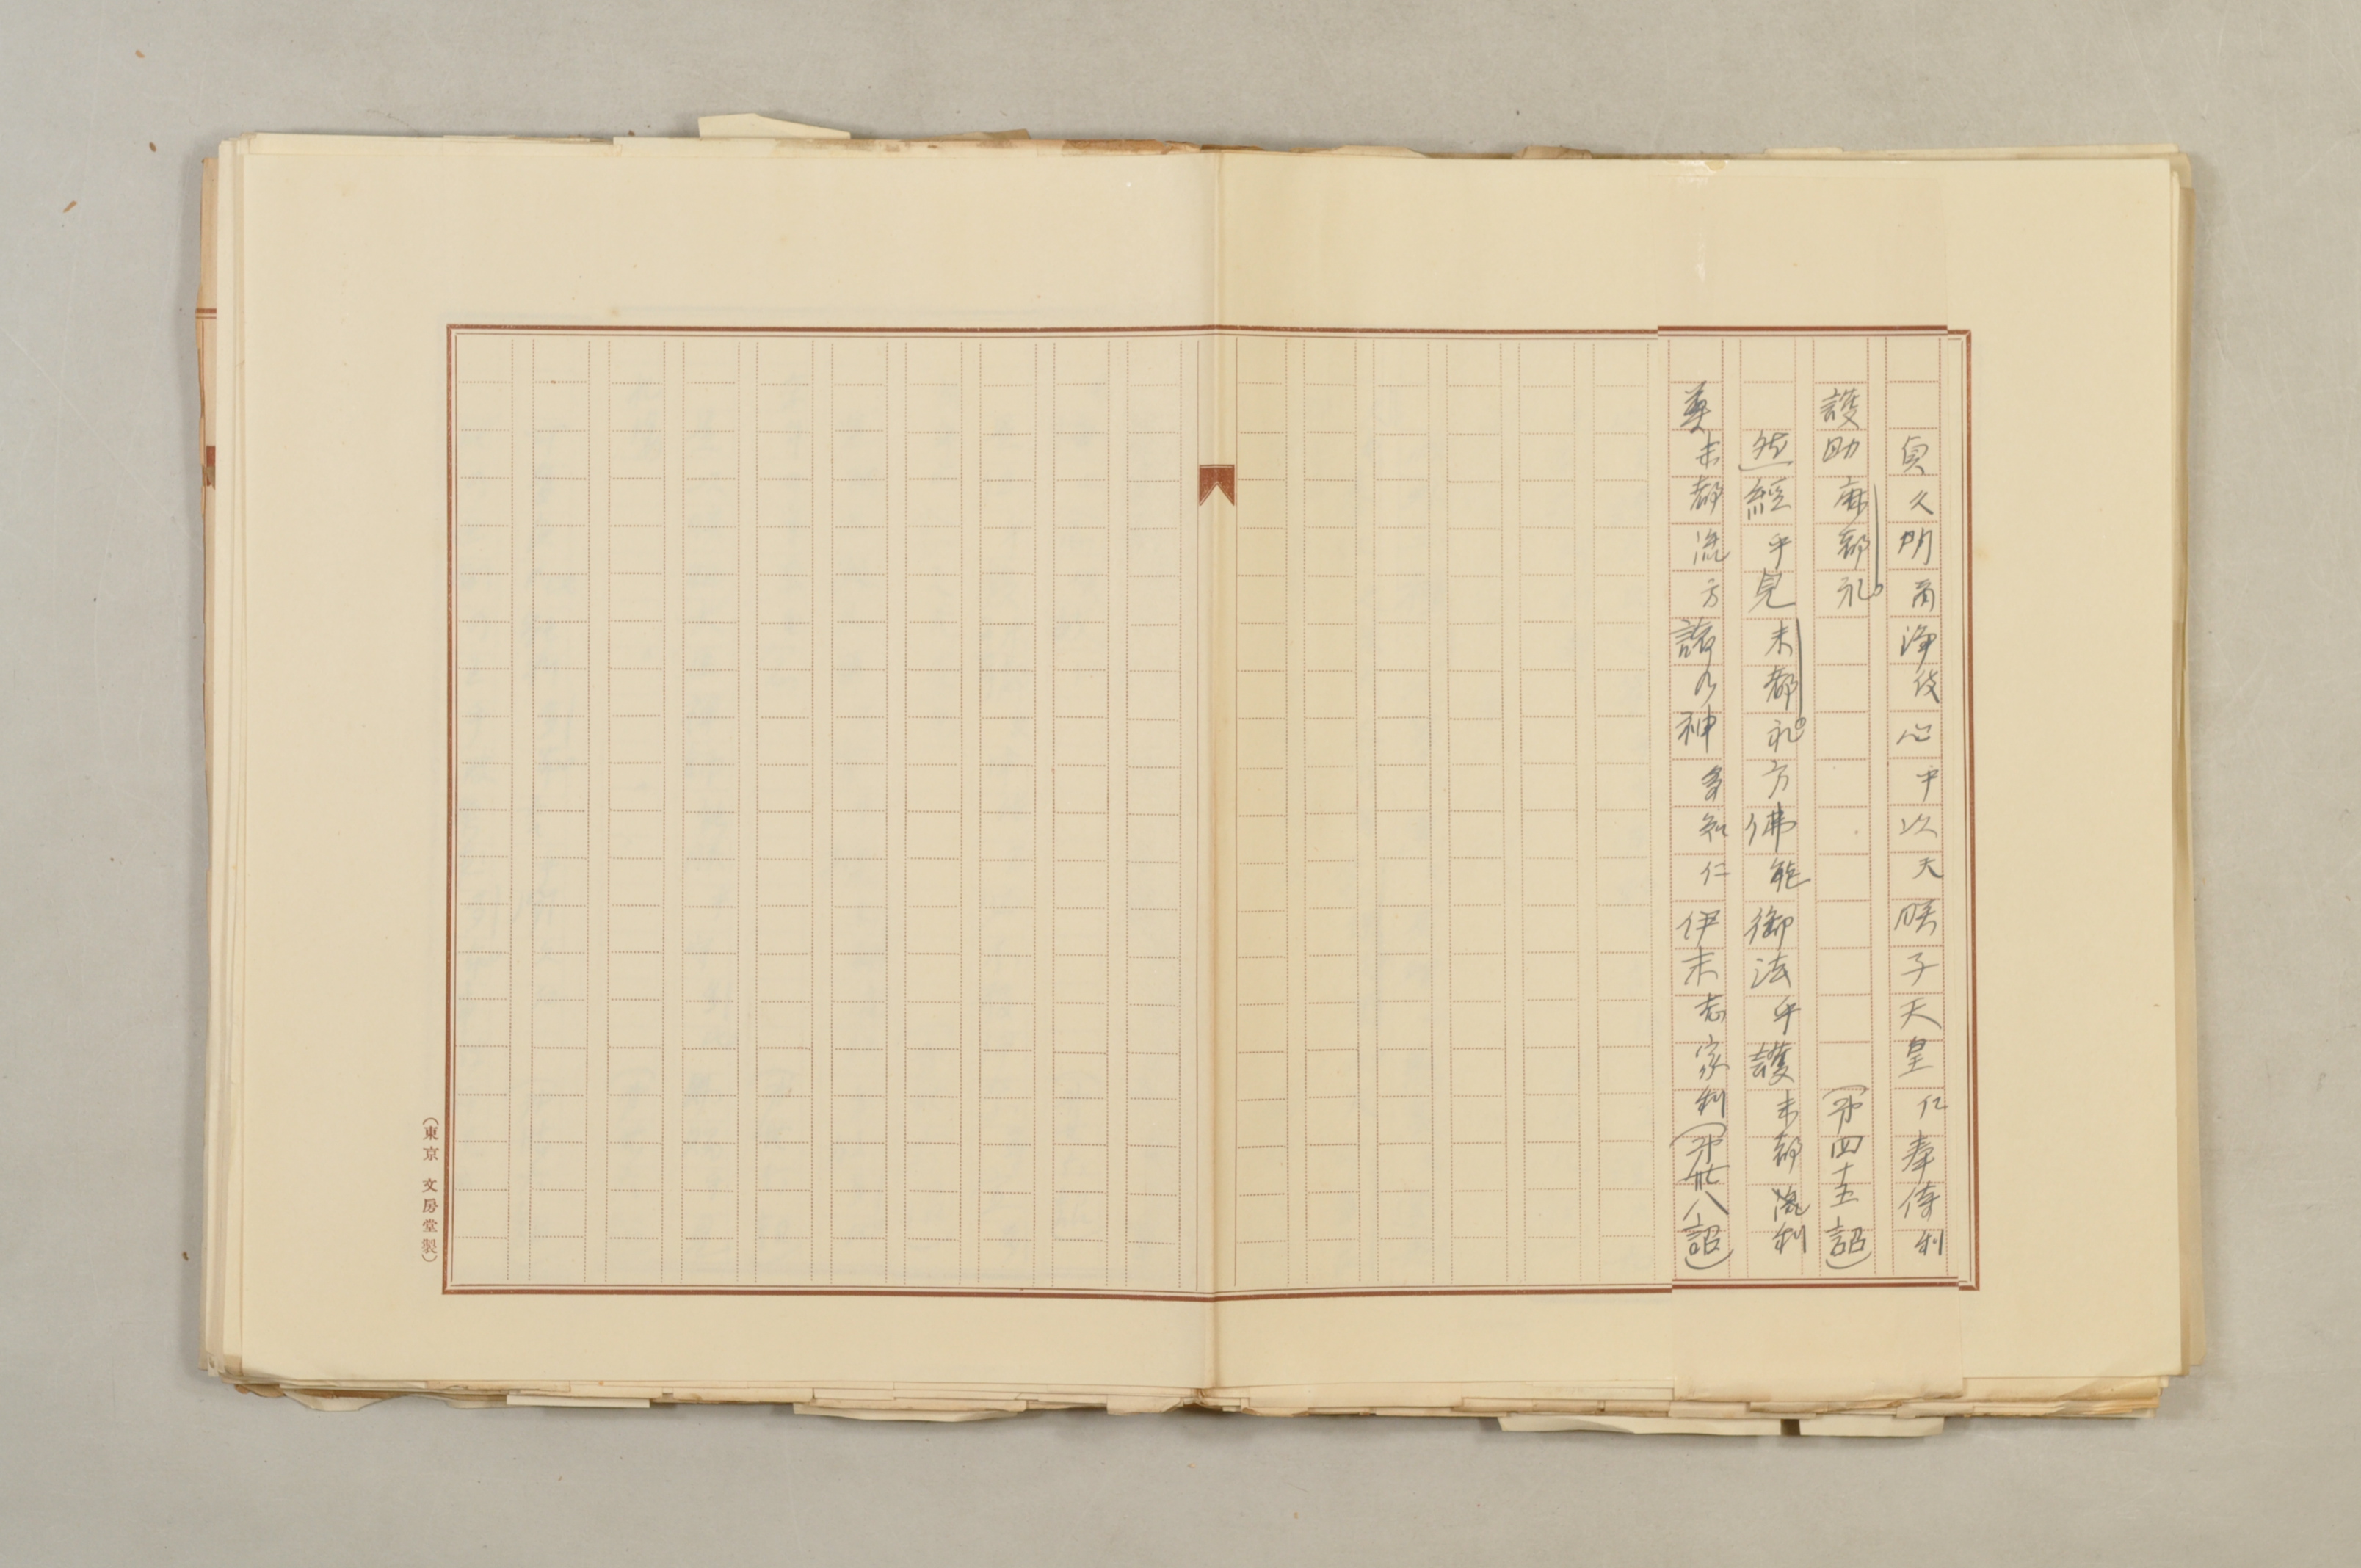 貞久明爾淨伎心乎以天朕子天皇仁奉侍利
護助麻都礼（第四十五詔）
然經乎見末都礼方佛能御法乎護末都利
尊末都流方諸乃神多知仁伊末志家利（第卅八詔）
（東京 文房堂製）